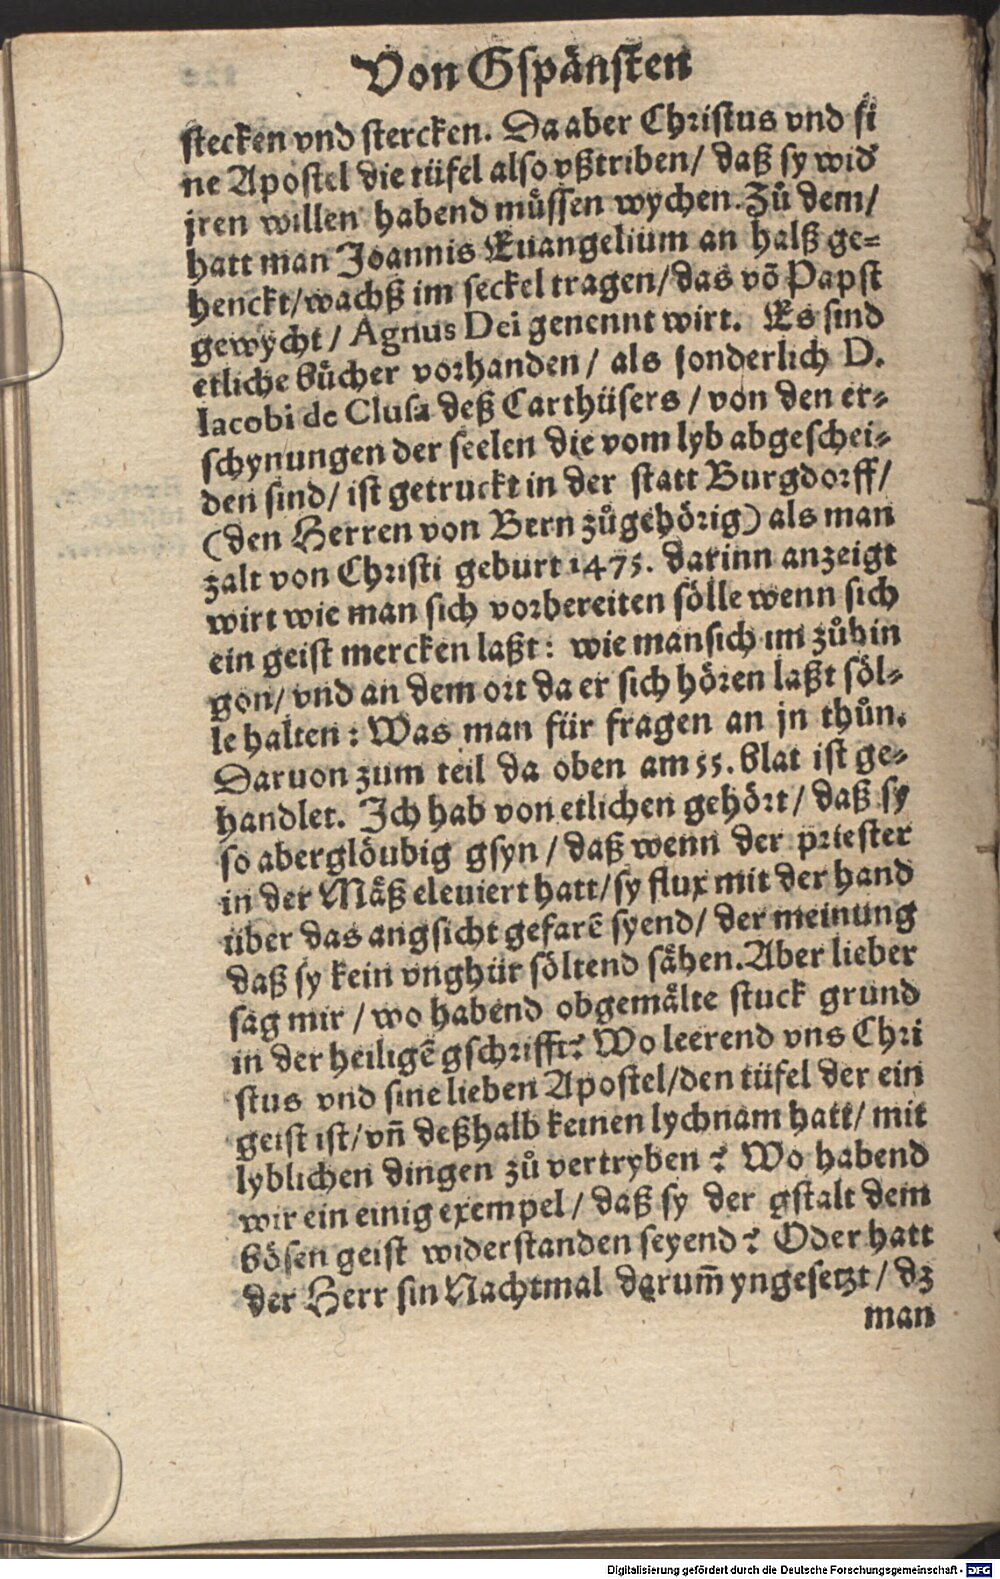 Von Gspänsten
stecken vnd stercken. Da aber Christus vnd si
ne Apostel die tüfel also vßtriben/ daß sy wid
jren willen habend müssen wychen. Zů dem/
hatt man Joannis Euangelium an halß ge=
henckt/ wachß im seckel tragen/ das võ Papst
gewycht/ Agnus Dei genennt wirt. Es sind
etliche bücher vorhanden/ als sonderlich D.
Iacobi de Clusa deß Carthüsers/ von den er=
schynungen der seelen die vom lyb abgeschei=
den sind/ ist getruckt in der statt Burgdorff/
(den Herren von Bern zůgehörig) als man
zalt von Christi geburt 1475. darinn anzeigt
wirt wie man sich vorbereiten sölle wenn sich
ein geist mercken laßt: wie man sich im zůhin
gon/ vnd an dem ort da er sich hören laßt söl=
le halten: Was man für fragen an jn thůn.
Daruon zum teil da oben am 55. blat ist ge=
handlet. Ich hab von etlichen gehört/ daß sy
so aberglöubig gsyn/ daß wenn der priester
in der Mäß eleuiert hatt/ sy flux mit der hand
über das angsicht gefarẽ syend/ der meinung
daß sy kein vnghür söltend sähen. Aber lieber
sag mir/ wo habend obgemälte stuck grund
in der heiligẽ gschrifft? Wo leerend vns Chri
stus vnd sine lieben Apostel/ den tüfel der ein
geist ist/ vñ deßhalb keinen lychnam hatt/ mit
lyblichen dingen zů vertryben? Wo habend
wir ein einig exempel/ daß sy der gstalt dem
bösen geist widerstanden seyend? Oder hatt
der Herr sin Nachtmal darum̃ yngesetzt/ dz
man
Digitalisierung gefördert durch die Deutsche Forschungsgemeinschaft - DFG